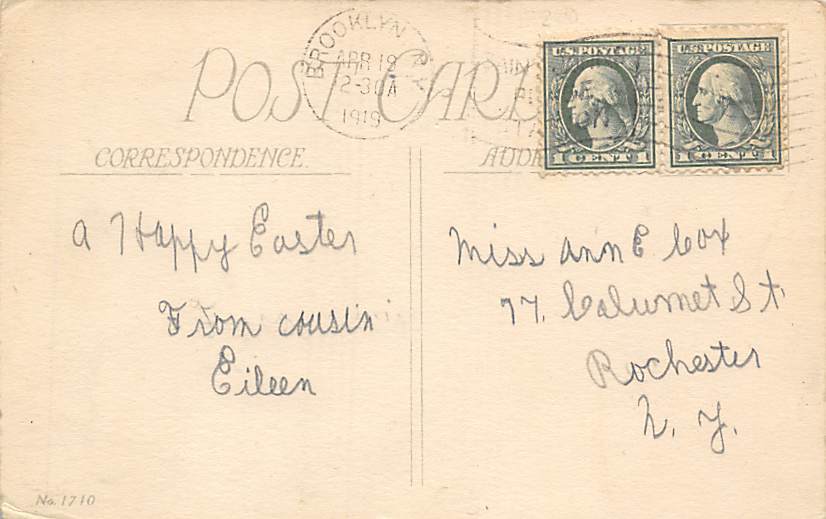 POST CARD
BROOKLYN N.Y.
APR 18
2-30A
1919
U.S. POSTAGE
1 CENT 1
U.S. POSTAGE
1 CENT 1
CORRESPONDENCE.
A Happy Easter
From cousin
Eileen
Miss Ann E Cox
77. Calumet St.
Rochester
N. Y.
No. 1710